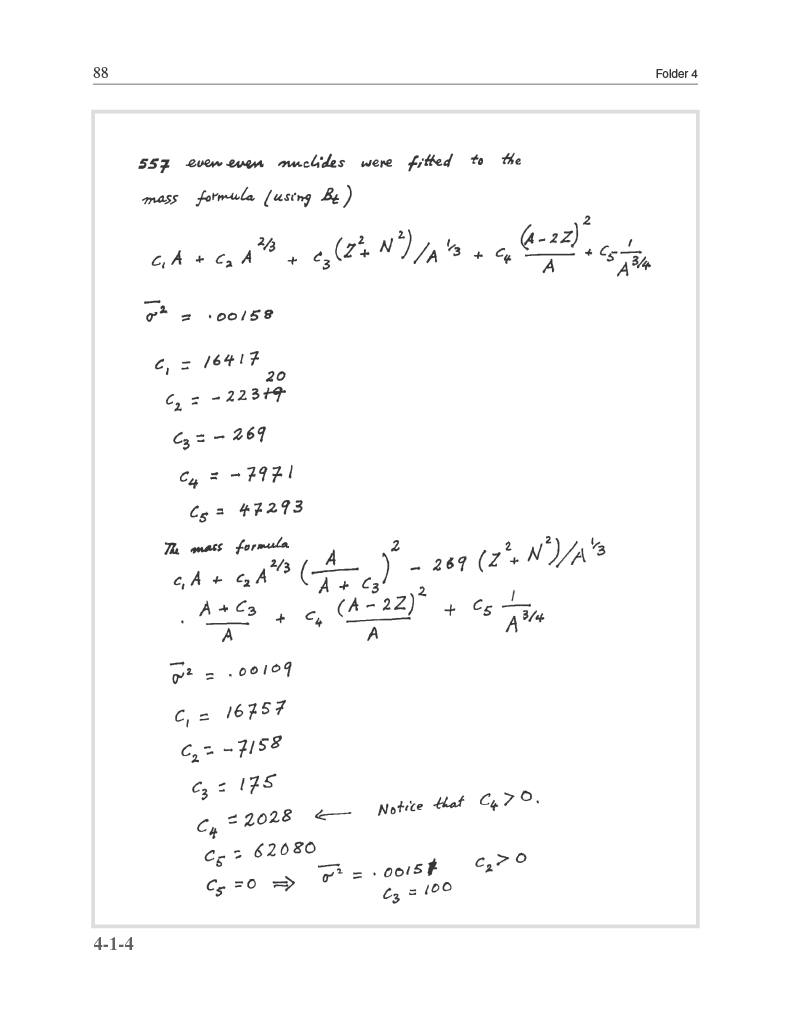 88
Folder 4
557 even even nuclides were fitted to the
mass formula (using Bt)
C₁A + C₂A^2/3 + C₃(Z² + N²)/A^1/3 + C₄ (A-2Z)²/A + C₅ 1/A^3/4
σ² = .00158
C₁ = 16417
20
C₂ = -22319
C₃ = -269
C₄ = -7971
C₅ = 47293
The mass formula
C₁A + C₂A^2/3 (A/(A + C₃))² - 269 (Z² + N²)/A^1/3
. (A + C₃)/A + C₄ (A-2Z)²/A + C₅ 1/A^3/4
σ² = .00109
C₁ = 16757
C₂ = -7158
C₃ = 175
C₄ = 2028 ← Notice that C₄ > 0.
C₅ = 62080
C₅ = 0 ⇒ σ² = .0015 C₂ > 0
C₃ = 100
4-1-4